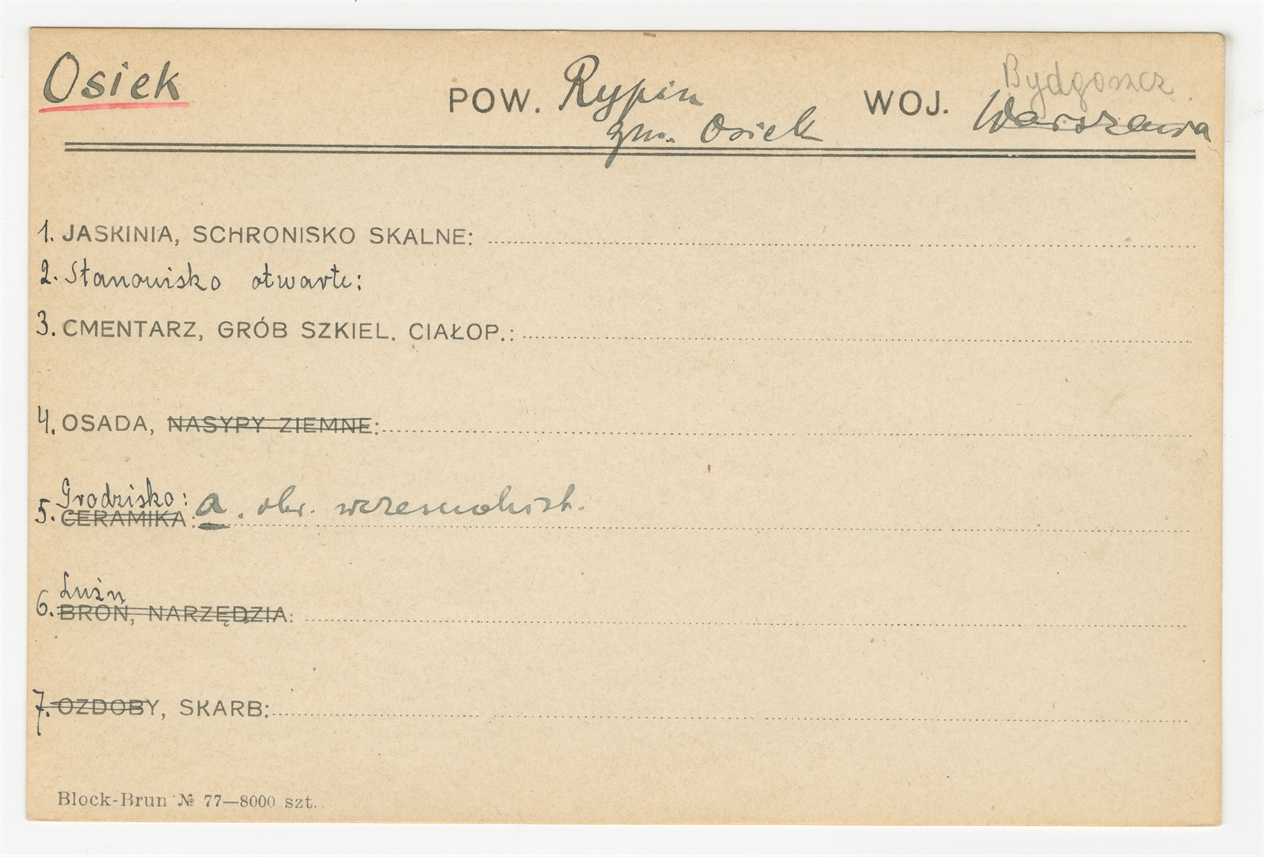 Osiek POW. Rypin WOJ. Bydgoszcz
gm. Osiek Warszawa
1. JASKINIA, SCHRONISKO SKALNE:
2. Stanowisko otwarte:
3. CMENTARZ, GRÓB SZKIEL. CIAŁOP.:
4. OSADA, NASYPY ZIEMNE:
Grodzisko: a. okr. wczesnohist.
5. CERAMIKA:
Luźn
6. BROŃ, NARZĘDZIA:
7. OZDOBY, SKARB:
Block-Brun № 77—8000 szt.